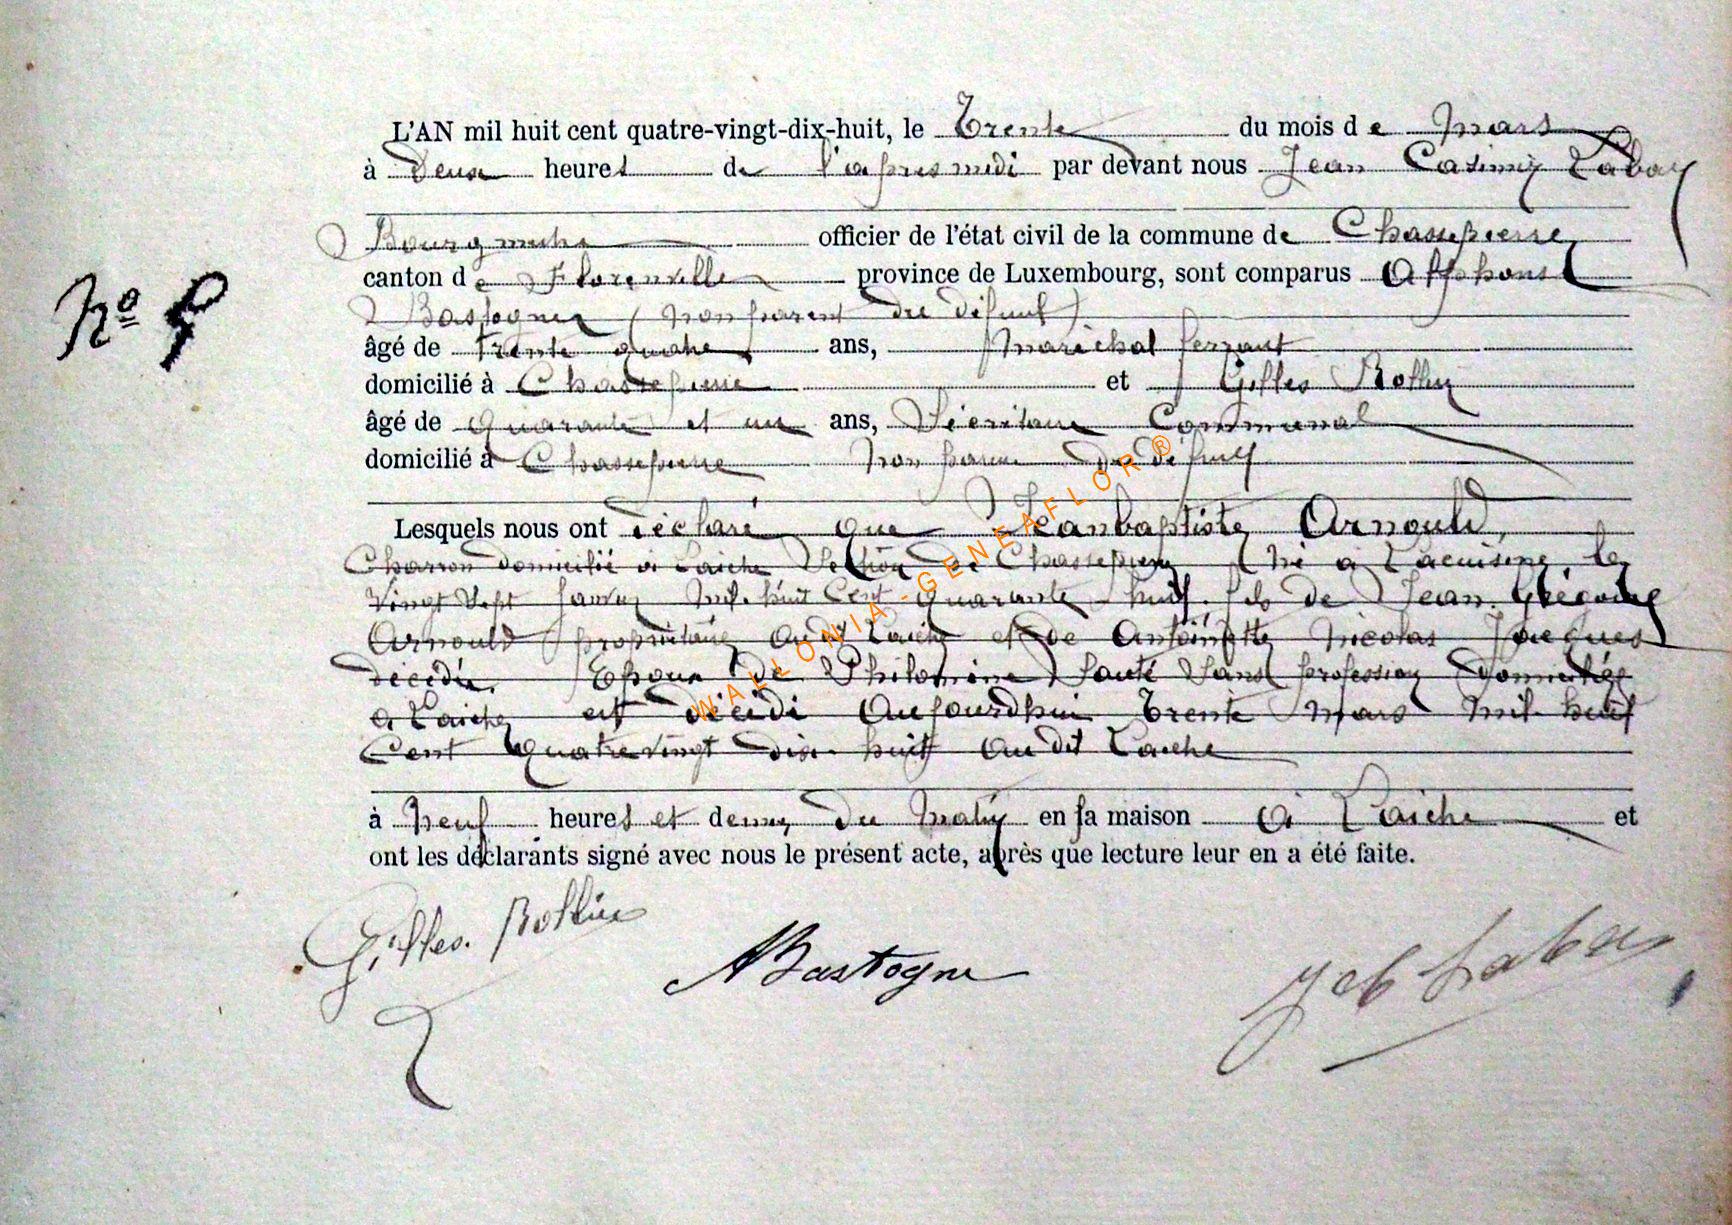 L'AN mil huit cent quatre-vingt-dix-huit, le Trente du mois de Mars
à Deux heures de l'apresmidi par devant nous Jean Casimir
Bourgmestre officier de l'état civil de la commune de Chassepierre
canton de Florenville province de Luxembourg, sont comparus Alphonse
Bastogne (non parent du défunt)
âgé de Trente quatre ans, Maréchal ferrant
domicilié à Chassepierre et Gilles Rollin
âgé de quarante et un ans, Sécrétaire Communal
domicilié à Chassepierre non parent du défunt
Lesquels nous ont déclaré que Jeanbaptiste Arnould,
Charron domicilié à Laiche Section de Chassepierre né à Lacuisine le
vingt sept Janvier mil huit cent quarante huit, fils de Jean Grégoire
Arnould propriétaire au dit Laiche et de Antoinette Nicolas Jacques
décédée. Epoux de Philomène Sauté sans profession domiciliée
à Laiche est décédé aujourdhui Trente mars mil huit
cent quatrevingt dix huit au dit Laiche
à neuf heures et demie du matin en sa maison à Laiche et
ont les déclarants signé avec nous le présent acte, après que lecture leur en a été faite.
Gilles Rollin
ABastogne
WALLONIA-GENEAFLOR®